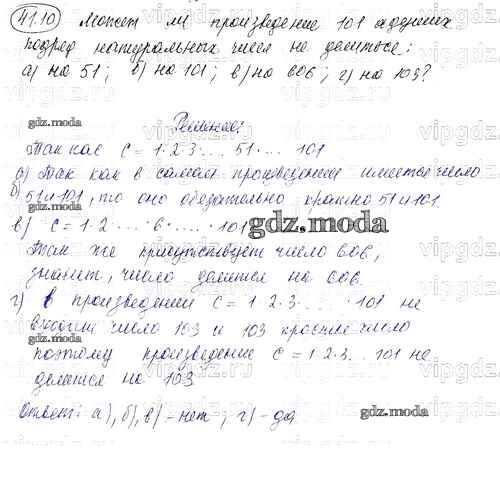 41.10 Может ли произведение 101 идущих
подряд натуральных чисел не делиться:
а) на 51; б) на 101; в) на 606; г) на 103?
Решение:
gdz.moda
Так как С = 1·2·3·... 51·... 101
а) Так как в самом произведении имеется число
б) 51 и 101, то оно обязательно кратно 51 и 101
в) С = 1·2·...·6·...·101
gdz.moda
Там же присутствует число 606,
значит, число делится на 606.
г) в произведении С = 1·2·3·...·101 не
входит число 103 и 103 простое число
gdz.moda
поэтому произведение С = 1·2·3...101 не
делится на 103
Ответ: а), б), в) - нет; г) - да
gdz.moda
vipgdz